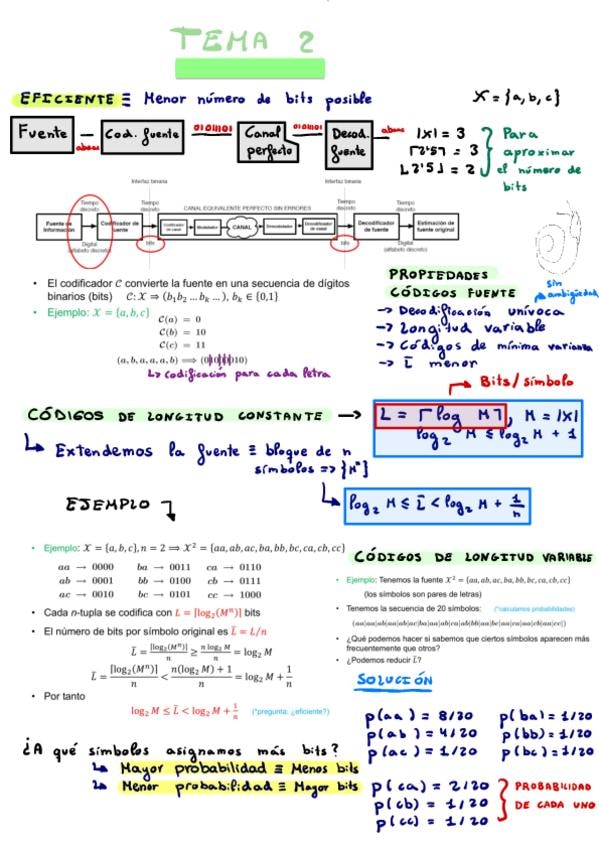 TEMA 2
EFICIENTE ≡ Menor número de bits posible
X = {a, b, c}
Fuente
abaac
Cod. fuente
0101101
Canal perfecto
0101101
Decod. fuente
abaac
|X| = 3
⌈2,5⌉ = 3
⌊2,5⌋ = 2
Para
aproximar
el número de
bits
Interfaz binaria
Interfaz binaria
Tiempo discreto
Tiempo discreto
CANAL EQUIVALENTE PERFECTO SIN ERRORES
Tiempo discreto
Tiempo discreto
Fuente de Información
Codificador de fuente
Codificador de canal
Modulador
CANAL
Demodulador
Decodificador de canal
Decodificador de fuente
Estimación de fuente original
Digital (alfabeto discreto)
bits
bits
Digital (alfabeto discreto)
• El codificador C convierte la fuente en una secuencia de dígitos
binarios (bits) C: X ⇒ (b₁b₂ … bₖ … ), bₖ ∈ {0,1}
• Ejemplo: X = {a, b, c}
C(a) = 0
C(b) = 10
C(c) = 11
(a, b, a, a, a, b) ⟹ (01000010)
↳ Codificación para cada letra
PROPIEDADES
CÓDIGOS FUENTE
sin ambigüedad
-> Decodificación unívoca
-> Longitud variable
-> Códigos de mínima varianza
-> L̄ menor
Bits/símbolo
CÓDIGOS DE LONGITUD CONSTANTE →
L = ⌈log M⌉, M = |X|
log₂ M ≤ log₂ M + 1
↳ Extendemos la fuente ≡ bloque de n
símbolos => {Mⁿ}
log₂ M ≤ L̄ < log₂ M + 1/n
EJEMPLO
• Ejemplo: X = {a, b, c}, n = 2 ⟹ X² = {aa, ab, ac, ba, bb, bc, ca, cb, cc}
aa → 0000 ba → 0011 ca → 0110
ab → 0001 bb → 0100 cb → 0111
ac → 0010 bc → 0101 cc → 1000
• Cada n-tupla se codifica con L = ⌈log₂(Mⁿ)⌉ bits
• El número de bits por símbolo original es L̄ = L/n
L̄ = ⌈log₂(Mⁿ)⌉/n ≥ n log₂ M/n = log₂ M
L̄ = ⌈log₂(Mⁿ)⌉/n < n(log₂ M) + 1/n = log₂ M + 1/n
• Por tanto
log₂ M ≤ L̄ < log₂ M + 1/n (*pregunta: ¿eficiente?)
CÓDIGOS DE LONGITUD VARIABLE
• Ejemplo: Tenemos la fuente X² = {aa, ab, ac, ba, bb, bc, ca, cb, cc}
(los símbolos son pares de letras)
• Tenemos la secuencia de 20 símbolos: (*calculamos probabilidades)
• ¿Qué podemos hacer si sabemos que ciertos símbolos aparecen más
frecuentemente que otros?
• ¿Podemos reducir L̄?
SOLUCIÓN
p(aa) = 8/20 p(ba) = 1/20
p(ab) = 4/20 p(bb) = 1/20
p(ac) = 1/20 p(bc) = 1/20
p(ca) = 2/20
p(cb) = 1/20
p(cc) = 1/20
PROBABILIDAD
DE CADA UNO
¿A qué símbolos asignamos más bits?
↳ Mayor probabilidad ≡ Menos bits
↳ Menor probabilidad ≡ Mayor bits